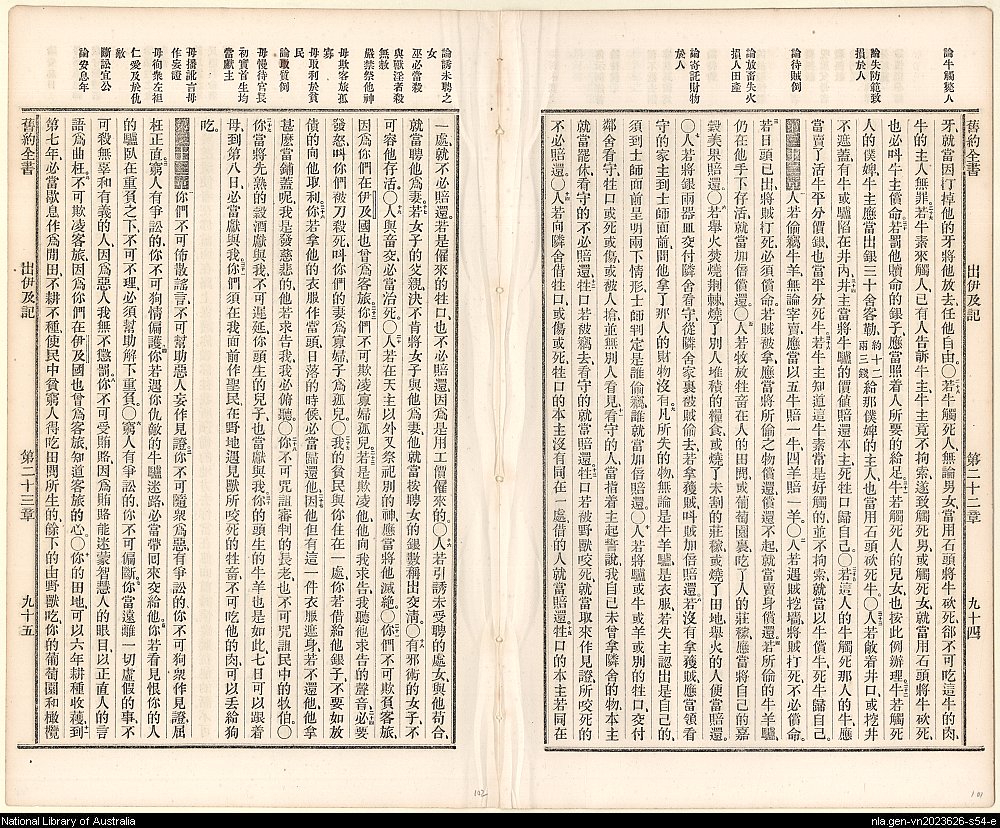 論牛觸斃人
論失防範致
損於人
論待賊例
論放畜失火
損人田產
論寄託財物
於人
舊約全書 出伊及記 第二十二章 九十四
牙就當因打掉他的牙將他放去任他自由〇若牛觸死人無論男女當用石頭將牛砍死卻不可吃這牛的肉、
牛的主人無罪若牛素來觸人已有人告訴牛主牛主竟不拘索遂致觸死男或觸死女就當用石頭將牛砍死
也必叫牛主償命若罰他贖命的銀子應當照着人所要的給足牛若觸死人的兒女也按此例辦理牛若觸死
人的僕婢牛主應當出銀三十舍客勒、約十二兩三錢給那僕婢的主人也當用石頭砍死牛〇人若敞着井口或挖井
不遮蓋有牛或驢陷在井內井主當將牛驢的價値賠還本主死牲口歸自己〇若這人的牛觸死那人的牛應
當賣了活牛平分價銀也當平分死牛若牛主知道這牛素常是好觸的並不拘索就當以牛償牛死牛歸自己。
人若偷竊牛羊無論宰賣應當以五牛賠一牛四羊賠一羊〇人若遇賊挖墻將賊打死不必償命
若日頭已出將賊打死必須償命若賊被拿應當將所偷之物償還償還不起就當賣身償還若所偷的牛羊驢
仍在他手下存活就當加倍償還〇人若牧放牲畜在人的田間或葡萄園裏吃了人的莊稼應當將自己的嘉
穀美果賠還〇若舉火焚燒荆棘燒了別人堆積的糧食或燒了未割的莊稼或燒了田地舉火的人便當賠還
〇人若將銀兩器皿交付隣舍看守從隣舍家裏被賊偷去若拿獲賊叫賊加倍賠還若沒有拿獲賊應當領看
守的家主到士師面前問他拿了那人的財物沒有凡所失的物無論是牛羊驢是衣服若失主認出是自己的
須到士師面前呈明兩下情形士師判定是誰偷竊誰就當加倍賠還〇人若將驢或牛或羊或別的牲口交付
鄰舍看守牲口或死或傷或被人搶並無別人看見看守的人當指着主起誓說我自己未曾拿隣舍的物本主
就當罷休看守的不必賠還牲口若被竊去看守的就當賠還牲口若被野獸咬死就當取來作見證所咬死的
不必賠還〇人若向隣舍借牲口或傷或死牲口的本主沒有同在一處借的人就當賠還牲口的本主若同在
論誘未聘之
女
巫必當殺
與獸淫者殺
無赦
嚴禁祭他神
毋欺客旅孤
寡
毋取利於貧
民
論取質例
毋慢待官長
初實首生均
當獻主
毋播訛言毋
作妄證
毋徇衆左袒
仁愛及於仇
敵
斷訟宜公
論安息年
一處就不必賠還若是僱來的牲口也不必賠還因爲是用工價僱來的〇人若引誘未受聘的處女與他苟合
就當聘他爲妻若女子的父親決不肯將女子與他爲妻他就當按聘女的銀數稱出交淸〇有邪術的女子不
可容他存活〇人與畜交必當治死〇人若在天主以外又祭祀別的神應當將他滅絶〇你們不可欺負客旅
因爲你們在伊及國也曾爲客旅你們不可欺凌寡婦孤兒若是欺凌他他向我求告我聽他求告的聲音必要
發怒叫你們被刀殺死叫你們的妻爲寡婦子爲孤兒〇我的貧民與你住在一處你若借給他銀子不要如放
債的向他取利你若拿他的衣服作當頭日落的時候必當歸還他因他但有這一件衣服遮身若不還他他拿
甚麽當鋪蓋呢我是發慈悲的他若求告我我必俯聽〇你不可咒詛審判的長老也不可咒詛民中的牧伯〇
你當將先熟的穀酒獻與我不可遲延你頭生的兒子也當獻與我你的頭生的牛羊也是如此七日可以跟着
母到第八日必當獻與我你們須在我面前作聖民在野地遇見獸所咬死的牲畜不可吃他的肉可以丟給狗
吃。
你們不可佈散謠言不可幫助惡人妄作見證你不可隨衆爲惡有爭訟的你不可狥衆作見證屈
枉正直窮人有爭訟的你不可狥情偏護你若遇你仇敵的牛驢迷路必當帶回來交給他你若看見恨你的人
的驢臥在重負之下不可不理必須幫助解下重負〇窮人有爭訟的你不可偏斷你當遠離一切虛假的事不
可殺無辜和有義的人因爲惡人我無不懲罰你不可受賄賂因爲賄賂能迷蒙智慧人的眼目以正直人的言
語爲曲枉不可欺凌客旅因爲你們在伊及國也曾爲客旅知道客旅的心〇你的田地可以六年耕種收穫到
第七年必當歇息作爲閒田不耕不種使民中貧窮人得吃田間所生的餘下的由野獸吃你的葡萄園和橄欖
舊約全書 出伊及記 第二十三章 九十五
102
101
National Library of Australia
nla.gen-vn2023626-s54-e